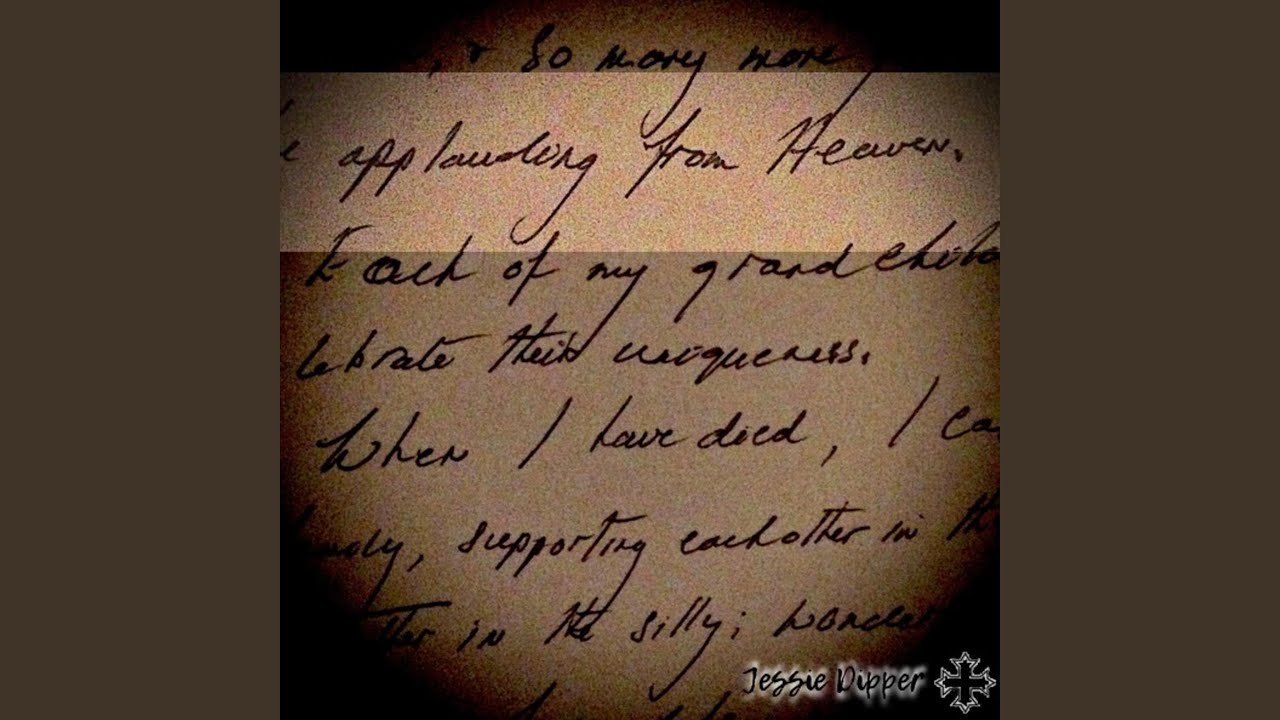 , & So many more
applauding from Heaven.
Each of my grandchild
lebrate their uniqueness.
When I have died, I ca
supporting eachother in th
in the silly; wonder
Jessie Dipper